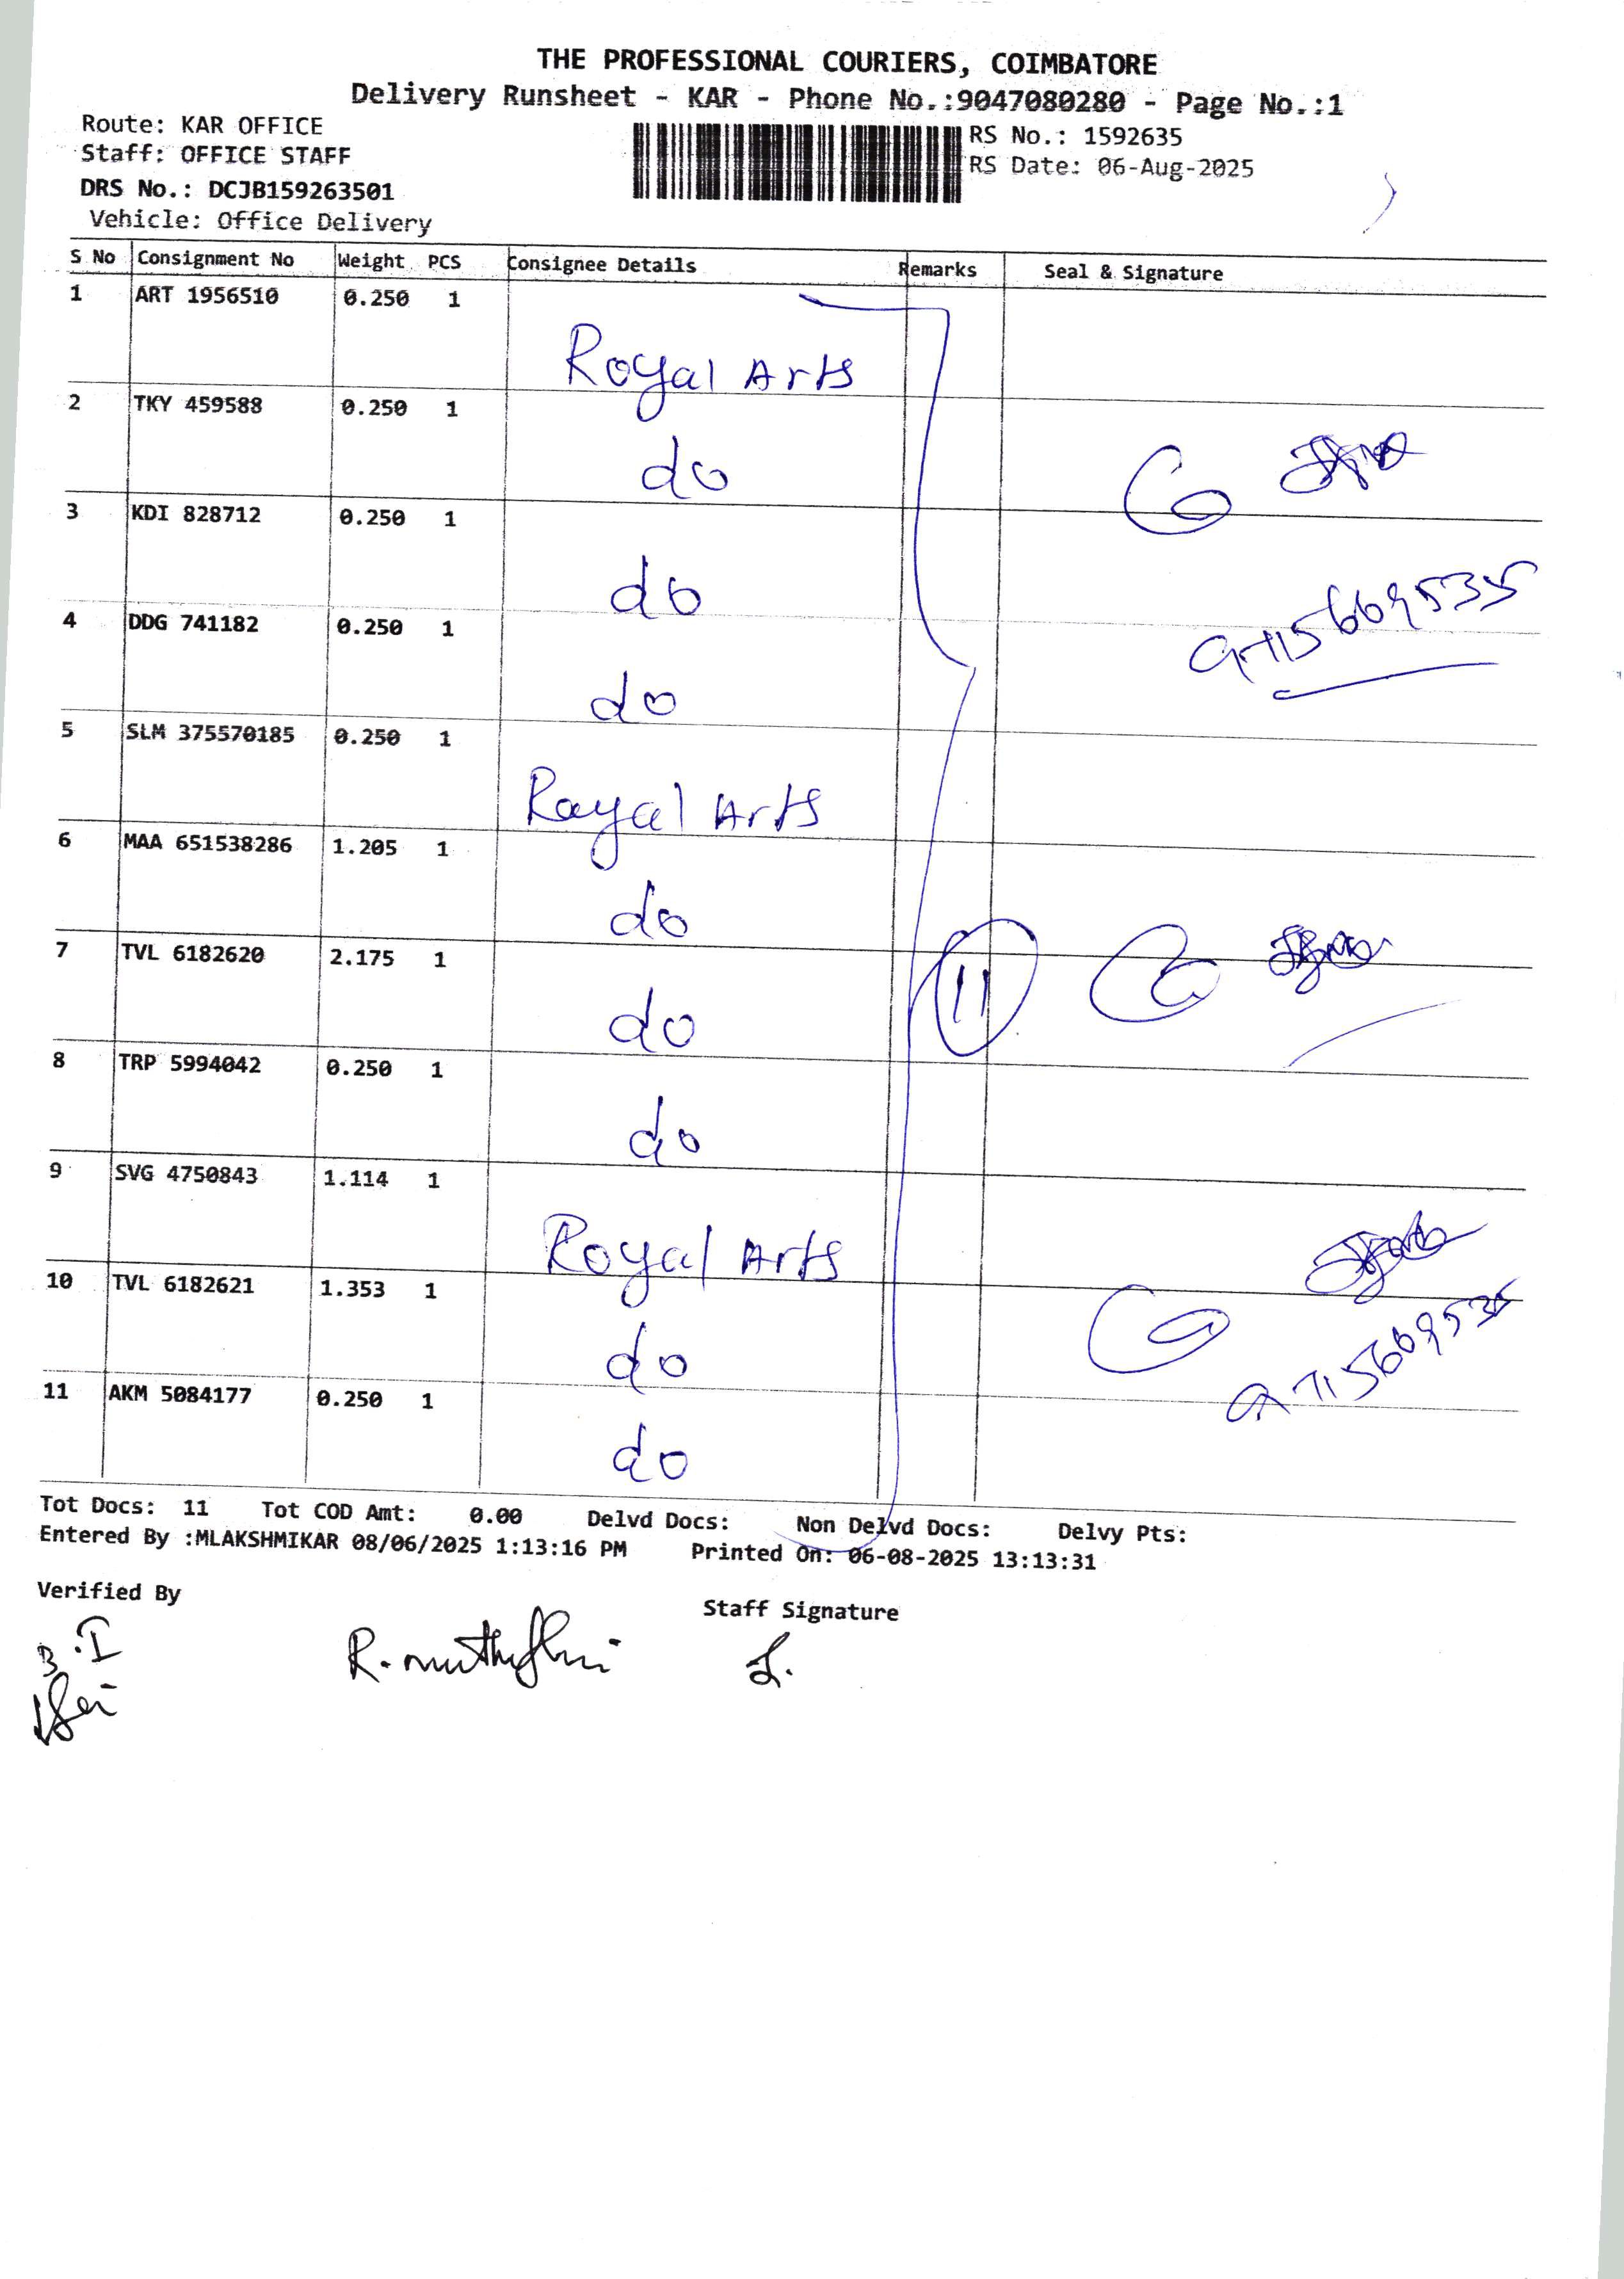 THE PROFESSIONAL COURIERS, COIMBATORE
Delivery Runsheet - KAR - Phone No.:9047080280 - Page No.:1
Route: KAR OFFICE
Staff: OFFICE STAFF
DRS No.: DCJB159263501
Vehicle: Office Delivery
RS No.: 1592635
RS Date: 06-Aug-2025
S No Consignment No Weight PCS Consignee Details Remarks Seal & Signature
1 ART 1956510 0.250 1
Royal Arts
2 TKY 459588 0.250 1
do
3 KDI 828712 0.250 1
do
4 DDG 741182 0.250 1
do
5 SLM 375570185 0.250 1
Royal Arts
6 MAA 651538286 1.205 1
do
7 TVL 6182620 2.175 1
do
11
8 TRP 5994042 0.250 1
do
9 SVG 4750843 1.114 1
Royal Arts
10 TVL 6182621 1.353 1
do
11 AKM 5084177 0.250 1
do
Tot Docs: 11 Tot COD Amt: 0.00 Delvd Docs: Non Delvd Docs: Delvy Pts:
Entered By :MLAKSHMIKAR 08/06/2025 1:13:16 PM Printed On: 06-08-2025 13:13:31
Verified By
Staff Signature